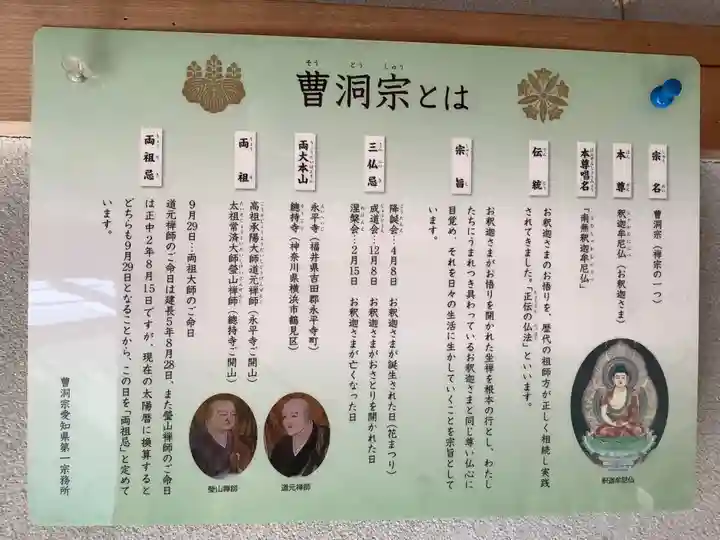 そう とう しゅう
曹洞宗とは
宗名
曹洞宗（禅宗の一つ）
本尊
釈迦牟尼仏（お釈迦さま）
本尊唱名
「南無釈迦牟尼仏」
伝統
お釈迦さまのお悟りを、歴代の祖師方が正しく相続し実践
されてきました。「正伝の仏法」といいます。
宗旨
お釈迦さまがお悟りを開かれた坐禅を根本の行とし、わたし
たちにうまれつき具わっているお釈迦さまと同じ尊い仏心に
目覚め、それを日々の生活に生かしていくことを宗旨として
います。
三仏忌
降誕会…4月8日 お釈迦さまが誕生された日（花まつり）
成道会…12月8日 お釈迦さまがおさとりを開かれた日
涅槃会…2月15日 お釈迦さまが亡くなった日
両大本山
永平寺（福井県吉田郡永平寺町）
總持寺（神奈川県横浜市鶴見区）
両祖
高祖承陽大師道元禅師（永平寺ご開山）
太祖常済大師瑩山禅師（總持寺ご開山）
両祖忌
9月29日…両祖大師のご命日
道元禅師のご命日は建長5年8月28日、また瑩山禅師のご命日
は正中2年8月15日ですが、現在の太陽暦に換算すると
どちらも9月29日となることから、この日を「両祖忌」と定めて
います。
釈迦牟尼仏
道元禅師
瑩山禅師
曹洞宗愛知県第一宗務所